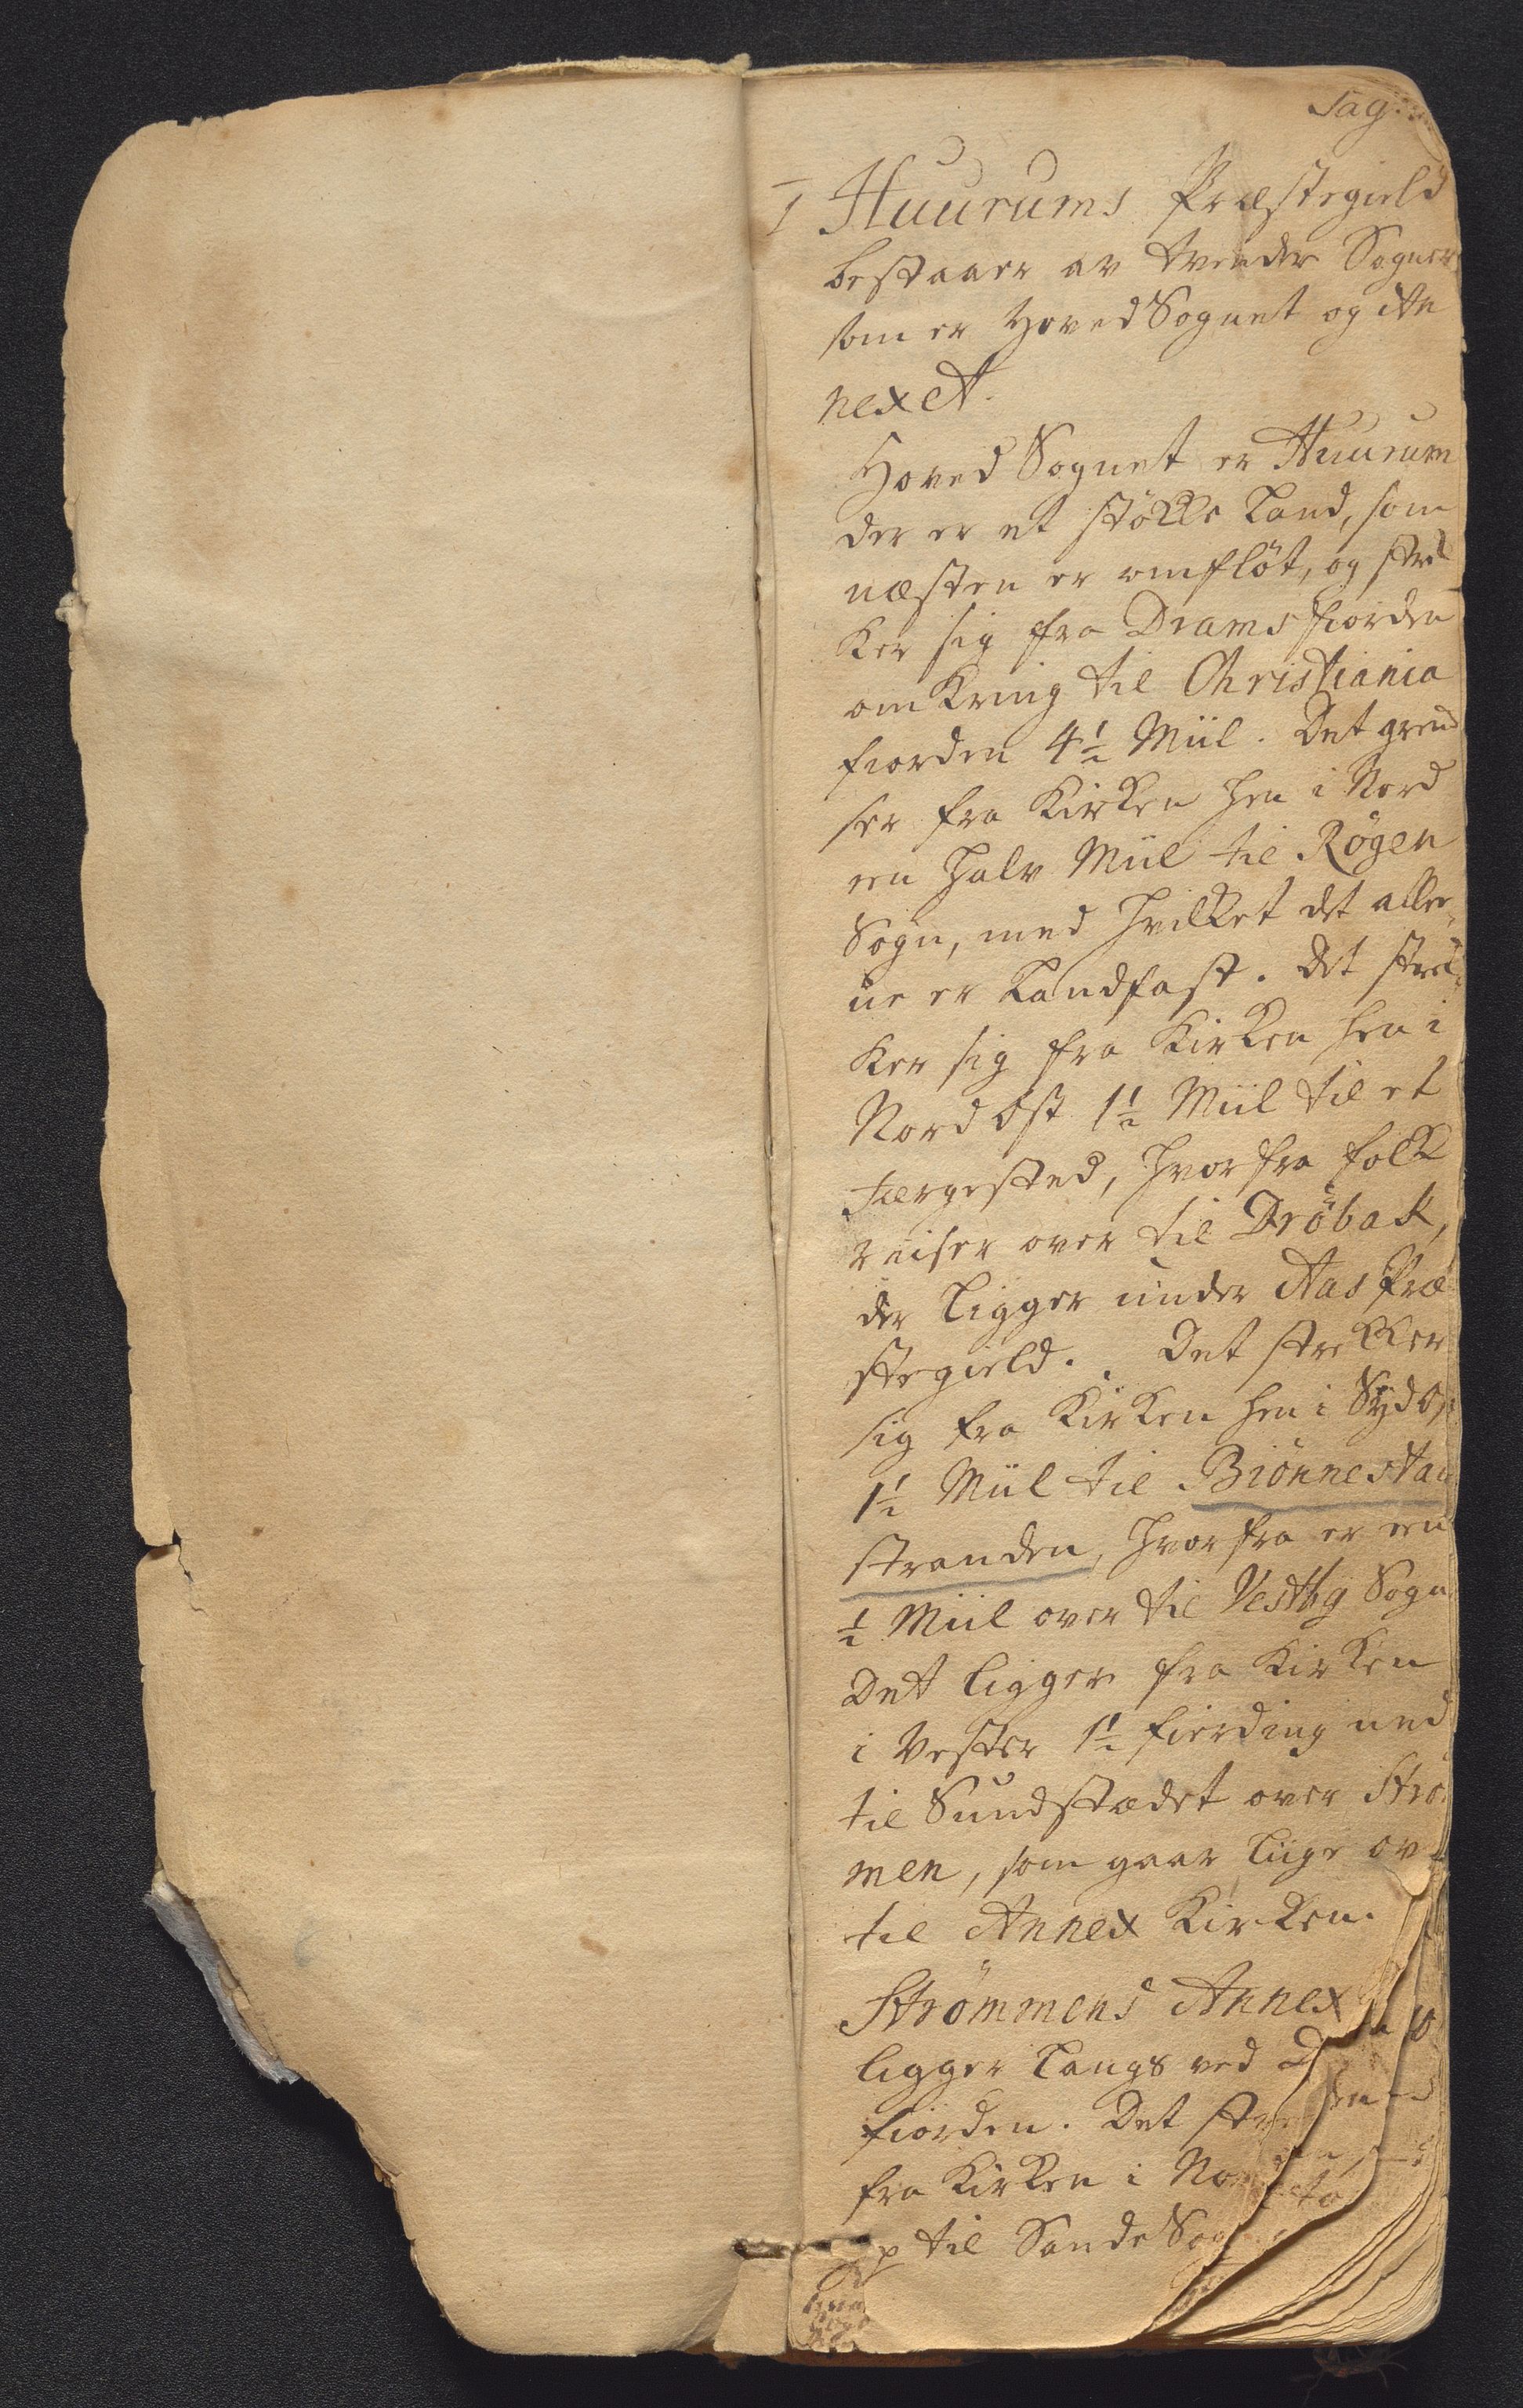 Pag:
1 Huurums Præstegield
bestaaer av tvende Sogner
som er Hoved Sognet og An
nexet.
Hoved Sognet er Huurum
der er et stökke Land, som
næsten er omflöt, og strek
ker sig fra Dramsfiorden
omkring til Christiania
fiorden 4 1/2 Miil. Det grend
ser fra Kirken hen i Nord
en halv Miil til Rögen
Sogn, med hvilket det alle-
ne er Landfast. Det strek-
ker sig fra Kirken hen i
Nord Ost 1 1/2 Miil til et
Færgested, hvorfra folk
reiser over til Dröbak,
der ligger under Aas Præ
stegield. Det strekker
sig fra Kirken hen i Syd
1 1/2 Miil til Biönnestan
stranden, hvorfra er en
1/2 Miil over til Vestby Sogn
Det ligger fra Kirken
i Vester 1 1/2 fierding ned
til Sundstædet over Strö
men, som gaar liige ov
til Annex Kirken.
Strömmens Annex
ligger langs ved
fiorden. Det
fra Kirken i
til Sande